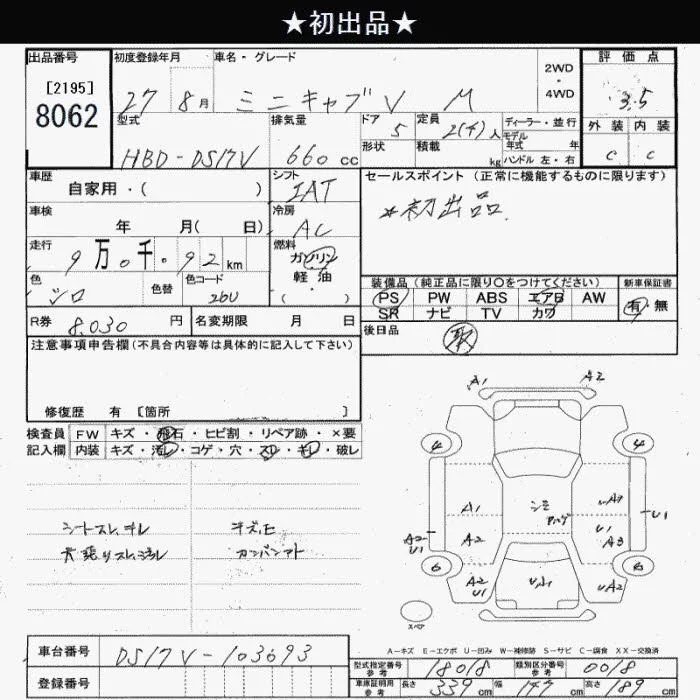 ★初出品★
出品番号
初度登録年月
車名・グレード
評価点
[2195]
8062
27 8月
ミニキャブV M
2WD
・
4WD
3.5
型式
排気量
ドア
定員
ディーラー・並行
モデル
年式 年
外装 内装
HBD-DS17V
660 cc
5
2(4)人
形状
積載
kg
ハンドル 左・右
C C
車歴
シフト
セールスポイント (正常に機能するものに限ります)
自家用・( )
IAT
*初出品.
車検
冷房
年 月( 日)
AC
走行
燃料
9万0千・92 km
ガソリン
軽・油
( )
色
色替
色コード
シロ
26U
装備品 (純正品に限り○をつけてください)
新車保証書
PS PW ABS エアB AW
有・無
SR ナビ TV カワ
R券 8.030 円
名変期限 月 日
後日品
取
注意事項申告欄 (不具合内容等は具体的に記入して下さい)
修復歴 有 [箇所 ]
検査員
FW キズ・飛石・ヒビ割・リペア跡・×要
記入欄
内装 キズ・汚レ・コゲ・穴・スレ・キレ・破レ
シートスレ、キレ
キズ、モ
天張りスレ、汚れ
カンバンアト
A1 A2
4 4
A1
シミ
A2
U1
A2
U1
A2
U1
A3
6 6
A2
U1
UA1
UA2
スペア
A-キズ E-エクボ U-凹み W-補修跡 S-サビ C-腐食 XX-交換済
車台番号
DS17V-103693
登録番号
型式指定番号
参考
18018
類別区分番号
参考
0018
車庫証明用
参考
長さ 339 cm
幅 147 cm
高さ 189 cm